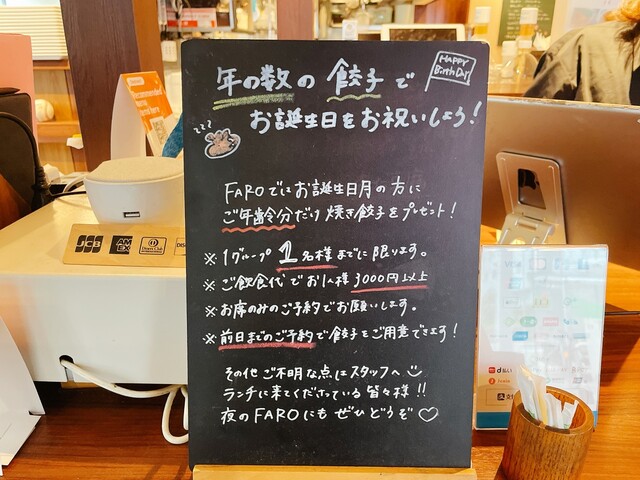 HAPPY
BirthDay
年の数の餃子で
お誕生日をお祝いしよう!
zzz
FAROではお誕生日月の方に
ご年齢分だけ焼き餃子をプレゼント!
※1グループ1名様までに限ります。
※ご飲食代でお1人様3000円以上
※お席のみのご予約でお願いします。
※前日までのご予約で餃子をご用意できます!
その他ご不明な点はスタッフへ
ランチに来てくださっている皆々様!!
夜のFAROにもぜひどうぞ♡
JCB
AMEX
Diners Club
DISC
d払い